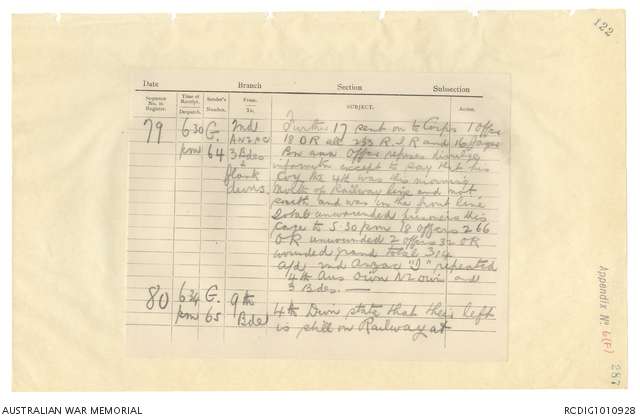 122
Date Branch Section Subsection
Sequence No. in Register. Time of Receipt. Despatch. Sender's Number. From. To. SUBJECT. Action.
79 6 30 pm G. 64 2nd ANZAC 3 Bdes + flank divns.
Further 17 sent on to Corps 1 Officer
18 OR all 233 R.I.R and
Officer refuses divulge
information except to say that his
Coy the 4th was this morning
North of Railway line and not
south and was in the front line
total unwounded prisoners this
cage to 5.30 pm 18 officers 266
OR unwounded 2 officers 32 OR
wounded grand total 314
a/d 2nd Anzac "I" repeated
4th Aus Divn NZ Divn and
3 Bdes. —
80 6 34 pm G. 65 9th Bde
4th Divn state that their left
is still on Railway at
Appendix No. 6(F)
287
AUSTRALIAN WAR MEMORIAL
RCDIG1010928